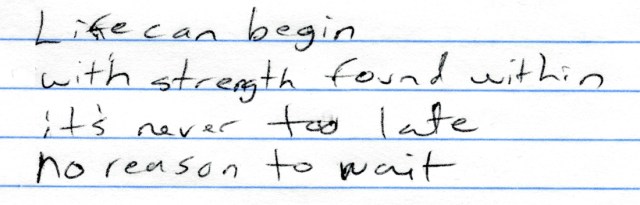 Life can begin
with strength found within
it's never too late
no reason to wait